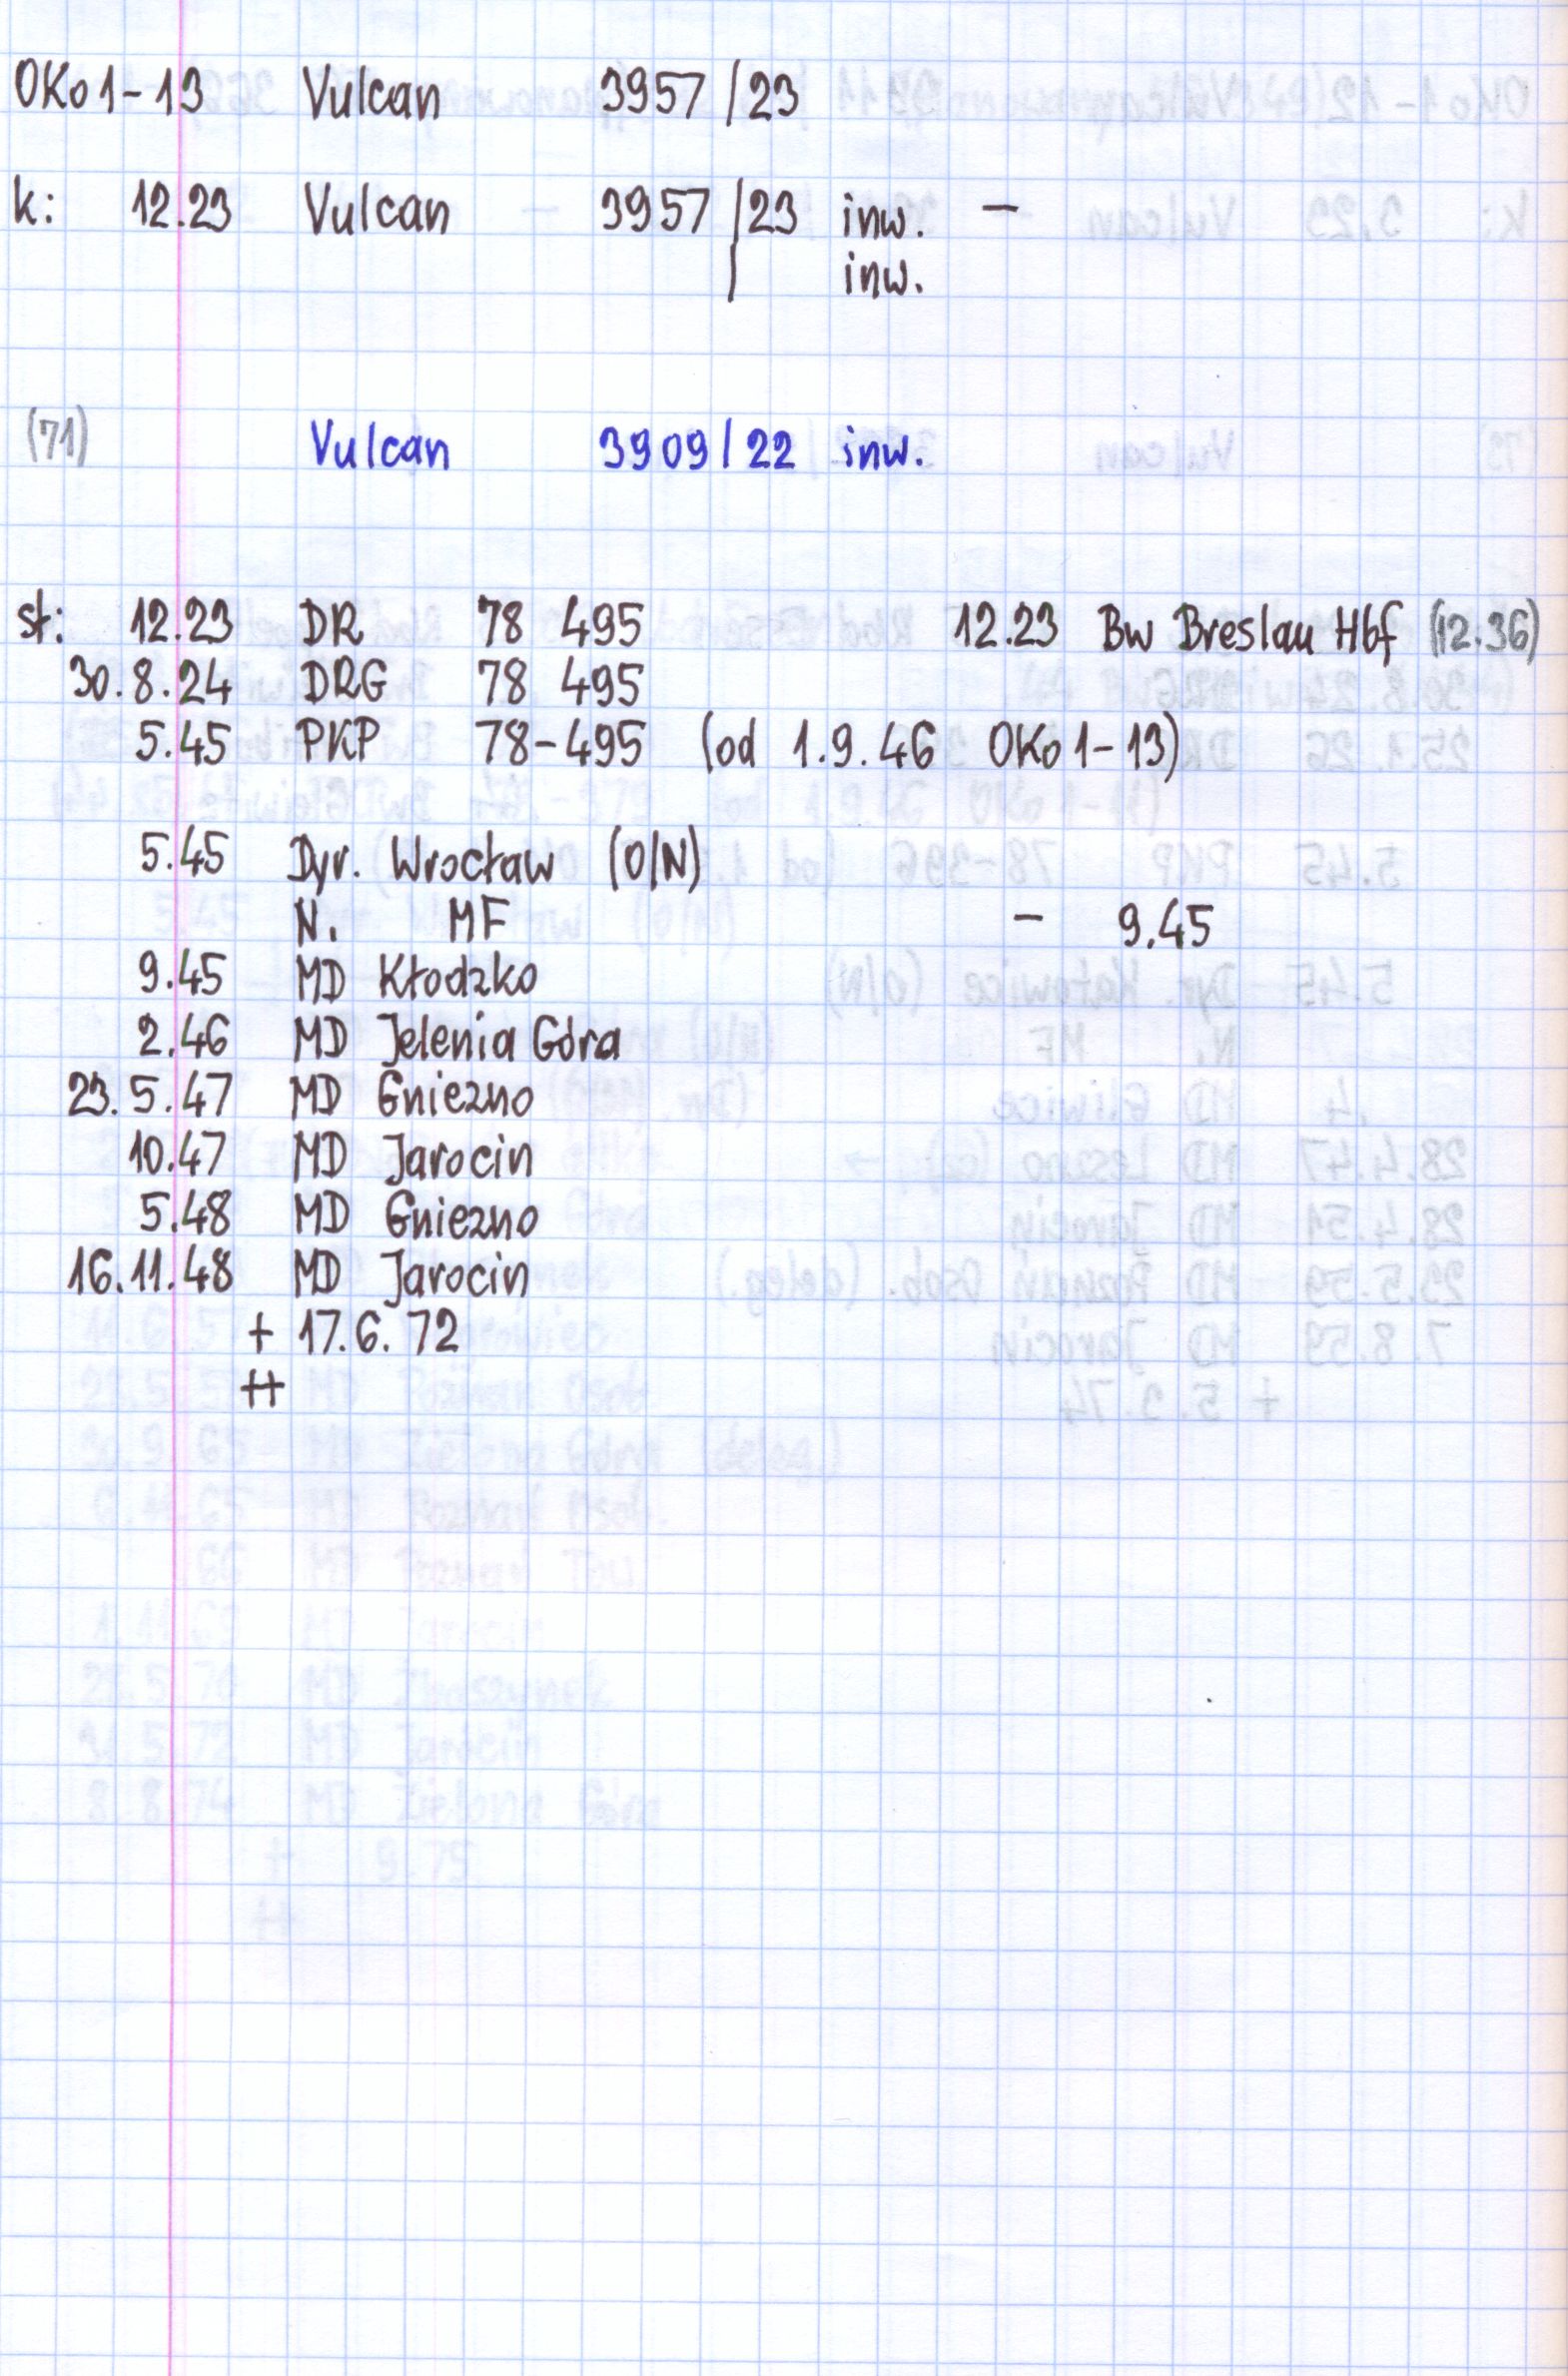 OKo1-13 Vulcan 3957/23
k: 12.23 Vulcan 3957/23 inw. –
/ inw.
(71) Vulcan 3909/22 inw.
st: 12.23 DR 78 495 12.23 Bw Breslau Hbf (12.36)
30.8.24 DRG 78 495
5.45 PKP 78-495 (od 1.9.46 OKo1-13)
5.45 Dyr. Wrocław (O/N)
N. MF – 9.45
9.45 MD Kłodzko
2.46 MD Jelenia Góra
23.5.47 MD Gniezno
10.47 MD Jarocin
5.48 MD Gniezno
16.11.48 MD Jarocin
+ 17.6.72
++